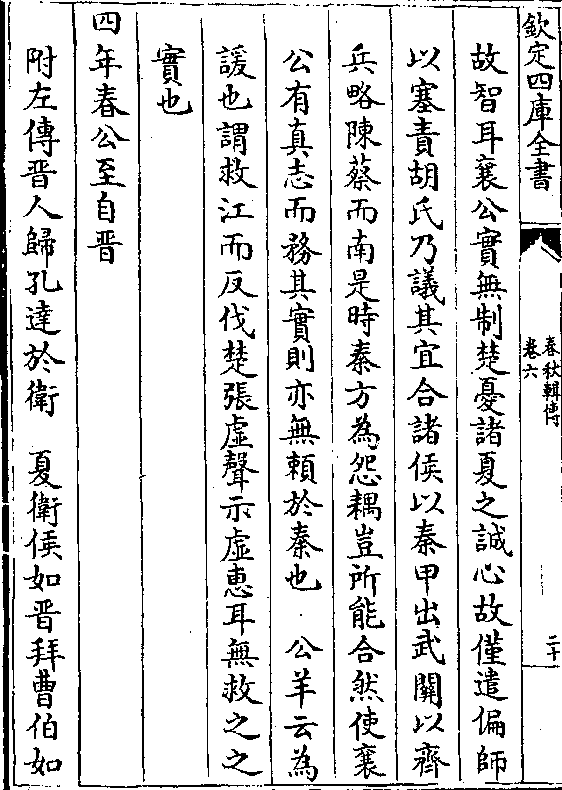 欽定四庫全書
春秋輯傳
卷六
二十
故智耳襄公實無制楚憂諸夏之誠心故僅遣偏師
以塞責胡氏乃議其宜合諸侯以秦甲出武關以齊
兵略陳蔡而南是時秦方為怨耦豈所能合然使襄
公有真志而務其實則亦無賴於秦也　公羊云為
諼也謂救江而反伐楚張虛聲示虛惠耳無救之之
實也
四年春公至自晋
附左傳晋人歸孔達於衛　夏衛侯如晋拜曹伯如